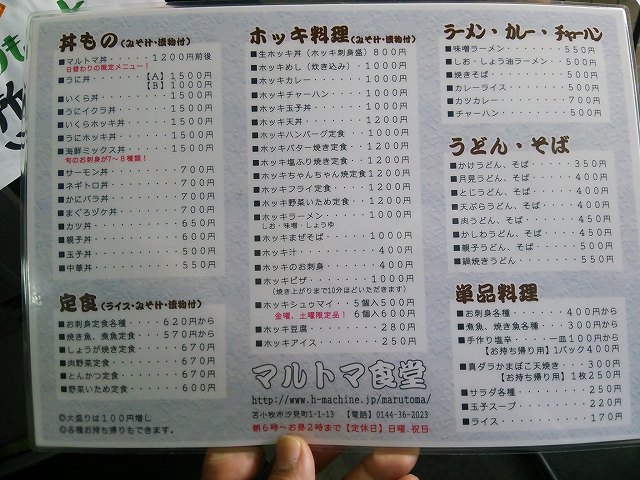 丼もの(みそ汁・漬物付)
■マルトマ丼・・・・・・1200円前後
日替わりの限定メニュー!
■うに丼 【A】1500円
【B】1000円
■いくら丼・・・・・・・1500円
■うにイクラ丼・・・・・1500円
■いくらホッキ丼・・・・1500円
■うにホッキ丼・・・・・1500円
■海鮮ミックス丼・・・・1500円
旬のお刺身が7~8種類!
■サーモン丼・・・・・・・700円
■ネギトロ丼・・・・・・・700円
■かにバラ丼・・・・・・・700円
■まぐろヅケ丼・・・・・・700円
■カツ丼・・・・・・・・・650円
■親子丼・・・・・・・・・600円
■玉子丼・・・・・・・・・500円
■中華丼・・・・・・・・・550円
定食(ライス・みそ汁・漬物付)
■お刺身定食各種・・・・620円から
■焼き魚、煮魚定食・・・570円から
■しょうが焼き定食・・・・670円
■肉野菜定食・・・・・・・670円
■とんかつ定食・・・・・・670円
■野菜いため定食・・・・・600円
◎大盛りは100円増し
◎各種お持ち帰りもできます。
ホッキ料理(みそ汁・漬物付)
■生ホッキ丼(ホッキ刺身盛)800円
■ホッキめし(炊き込み)・・1000円
■ホッキカレー・・・・・・1000円
■ホッキチャーハン・・・・1000円
■ホッキ玉子丼・・・・・・1000円
■ホッキ天丼・・・・・・・1200円
■ホッキハンバーグ定食・・1000円
■ホッキバター焼き定食・・1200円
■ホッキ塩ふり焼き定食・・1200円
■ホッキちゃんちゃん焼定食1200円
■ホッキフライ定食・・・・1200円
■ホッキ野菜いため定食・・1200円
■ホッキラーメン・・・・・1000円
しお・味噌・しょうゆ
■ホッキまぜそば・・・・・1000円
■ホッキ汁・・・・・・・・400円
■ホッキのお刺身・・・・・400円
■ホッキピザ・・・・・・・1000円
(焼き上がりまで10分ほどいただきます)
■ホッキシュウマイ・・5個入500円
金曜、土曜限定品! 6個入600円
■ホッキ豆腐・・・・・・・280円
■ホッキアイス・・・・・・250円
マルトマ食堂
http://www.h-machine.jp/marutoma/
苫小牧市汐見町1-1-13 【電話】0144-36-2023
朝6時~お昼2時まで【定休日】日曜、祝日
ラーメン・カレー・チャーハン
■味噌ラーメン・・・・・・550円
■しお・しょう油ラーメン・500円
■焼きそば・・・・・・・・500円
■カレーライス・・・・・・500円
■カツカレー・・・・・・・700円
■チャーハン・・・・・・・500円
うどん・そば
■かけうどん、そば・・・・350円
■月見うどん、そば・・・・400円
■とじうどん、そば・・・・400円
■天ぷらうどん、そば・・・400円
■肉うどん、そば・・・・・450円
■かしわうどん、そば・・・450円
■親子うどん、そば・・・・500円
■鍋焼きうどん・・・・・・550円
単品料理
■お刺身各種・・・・・・400円から
■煮魚、焼き魚各種・・・300円から
■手作り塩辛・・・・一皿100円から
【お持ち帰り用】1パック400円
■真ダラかまぼこ天焼き・・・300円
【お持ち帰り用】1枚250円
■サラダ各種・・・・・・・250円
■玉子スープ・・・・・・・220円
■ライス・・・・・・・・・170円